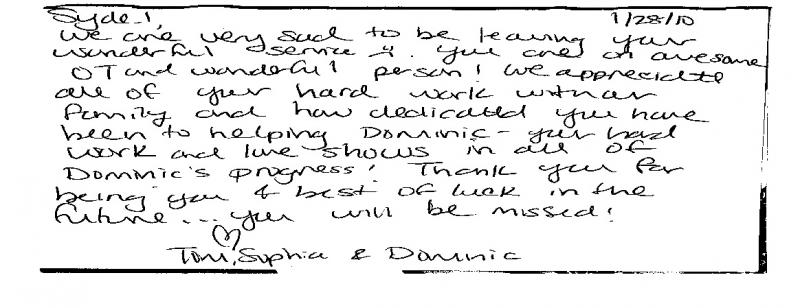 Syde!, 1/28/10
We are very sad to be leaving your
wonderful service &. You are an awesome
OT and wonderful person! We appreciate
all of your hard work with our
family and how dedicated you have
been to helping Dominic - your hard
work and love shows in all of
Dominic's progress! Thank you for
being you & best of luck in the
future... you will be missed!
Tom, Sophia & Dominic